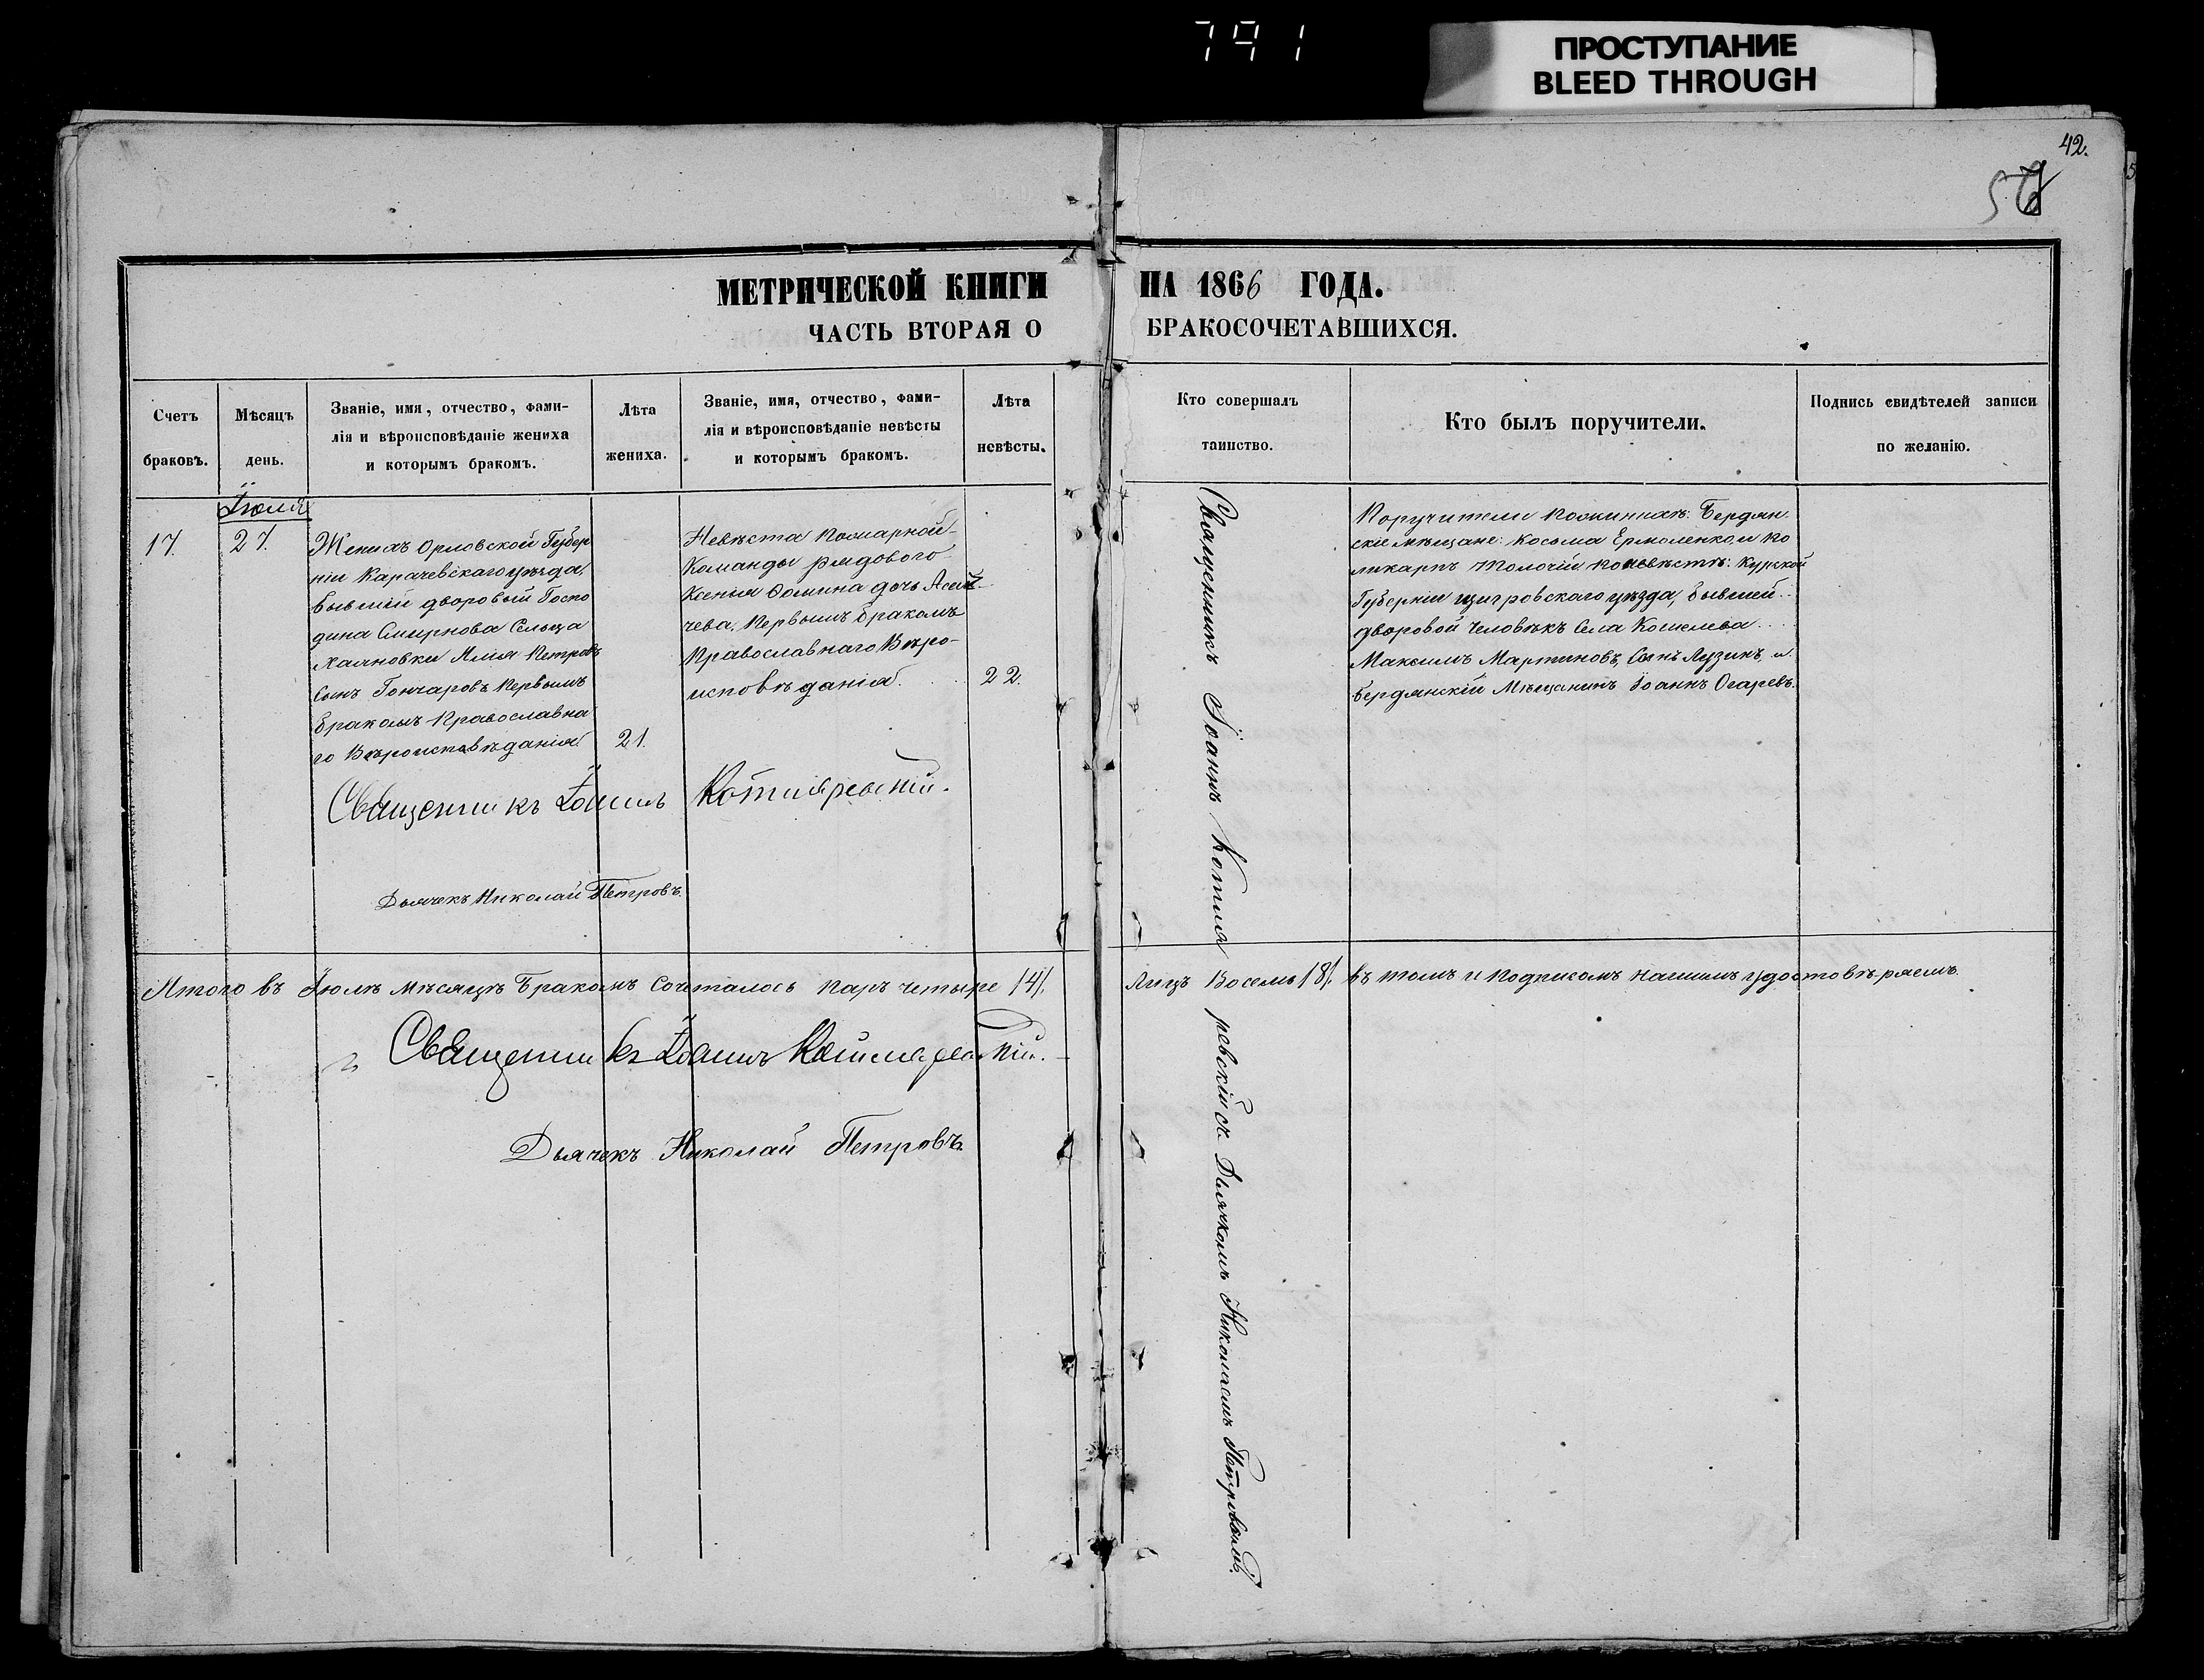 791
ПРОСТУПАНИЕ
BLEED THROUGH
42.
МЕТРИЧЕСКОЙ КНИГИ НА 1866 ГОДА.
ЧАСТЬ ВТОРАЯ О БРАКОСОЧЕТАВШИХСЯ.
Счетъ
браковъ.
Мѣсяцъ
день.
Званіе, имя, отчество, фами-
лія и вѣроисповѣданіе жениха
и которымъ бракомъ.
Лѣта
жениха.
Званіе, имя, отчество, фами-
лія и вѣроисповѣданіе невѣсты
и которымъ бракомъ.
Лѣта
невѣсты.
Кто совершалъ
таинство.
Кто былъ поручители.
Подпись свидѣтелей записи
по желанію.
Іюля
17.
27.
Женихъ Орловской Губер
ніи Карачевскаго уѣзда,
бывшій дворовый Госпо
дина Смирнова Сельца
Хаяновки Илія Петровъ
Сынъ Гончаровъ Первымъ
бракомъ Православна
го Вѣроисповѣданія
21.
Невѣста Пожарной
Команды рядового
Ксенія Ѳомина дочь
чева, Первымъ бракомъ
Православнаго Вѣро-
исповѣданія.
22.
Священникъ Іоаннъ Котляревскій съ Дьячкомъ Николаемъ Петровымъ.
Поручители по женихѣ: Бердян
скіе мѣщане: Косьма Ермоленко и По
ликарпъ Толочій по невѣстѣ: Курской
Губерніи Щигровскаго уѣзда, бывшей
дворовой человѣкъ Села Кошелева
Максимъ Мартиновъ, Сынъ Лузинъ, и
бердянскій Мѣщанинъ Іоаннъ Огаревъ.
Священникъ Іоаннъ Котляревскій.
Дьячекъ Николай Петровъ.
Итого въ Іюлѣ мѣсяцѣ Бракомъ Сочеталось паръ четыре /4/. Лицъ Восемь /8/. въ томъ и подписомъ нашимъ удостовѣряемъ.
Священникъ Іоаннъ Котляревскій.
Дьячекъ Николай Петровъ.